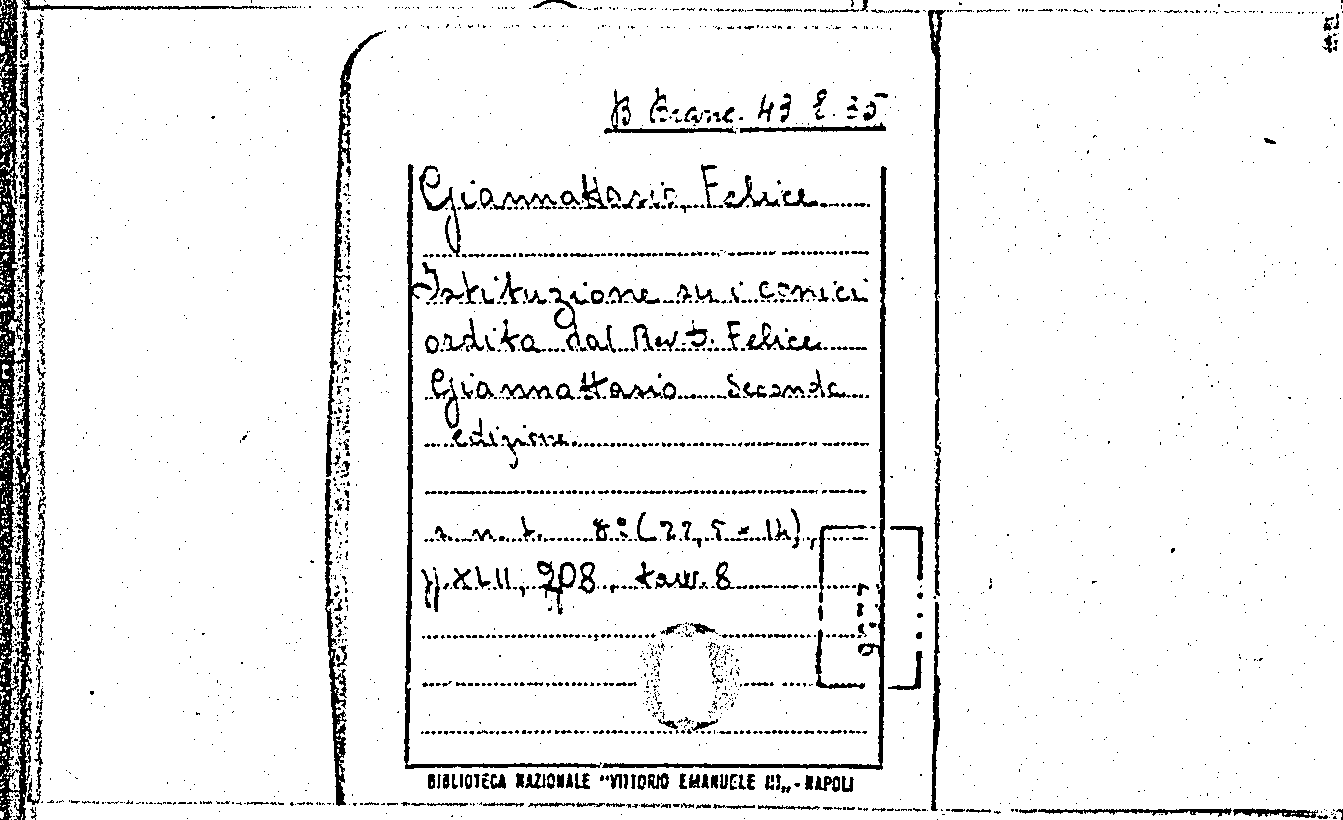 B Branc. 43 E. 35
Giannattasio, Felice
Istituzione su i conici
ordita dal Rev D. Felice
Giannattasio Seconda
edizione
s. n. t. 8° (22,5 × 14),
pp. XLII, 208, tavv. 8
BIBLIOTECA NAZIONALE "VITTORIO EMANUELE III„ - NAPOLI